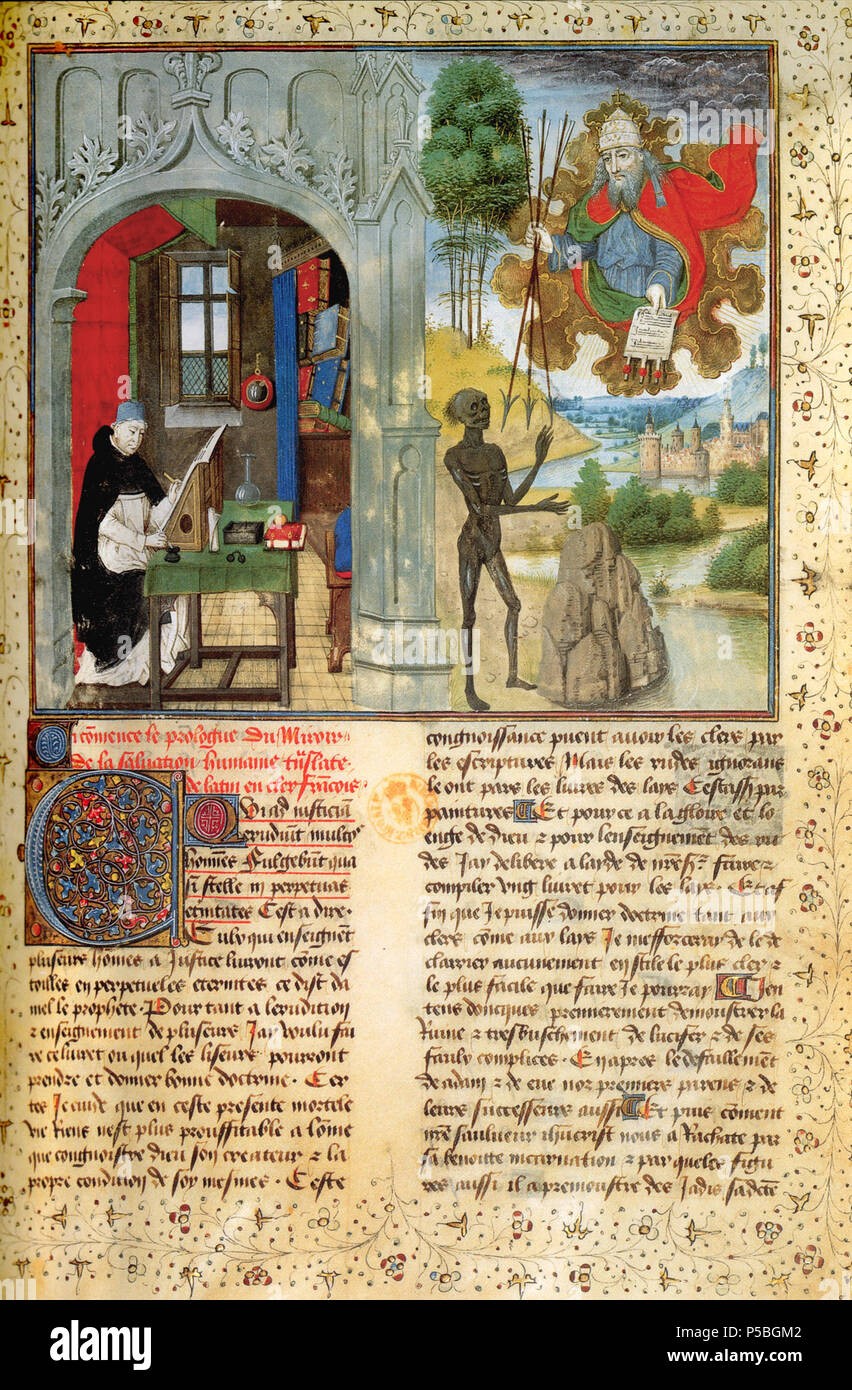 Cy cōmence le prologue du Miroir
de la saluation humaine trāslate
de latin en cler francois
Qui ad iusticiam
erudiunt multos
homines Fulgebūt qua
si stelle in perpetuas
eternitates Cest a dire.
Ceulx qui enseignent
pluseurs hommes a Justice luiront cōme es
toilles en perpetueles eternites ce dist da
niel le prophete. Pour tant a lerudition
⁊ enseignement de pluseurs Jay voulu fai
re ce liuret ou quel les liseurs pourront
prendre et donner bonne doctrine. Cer
tes Je cuide que en ceste presente mortele
vie Riens nest plus prouffitable a lōme
que congnoistre dieu son createur ⁊ la
propre condicion de soy mesmes. Ceste
congnoissance peuent auoir les clers par
les escriptures Mais les rudes ignorans
le ont par les liures des lays Cestassr par
paintures Et pour ce a la gloire et lo
enge de dieu ⁊ pour lenseignement des ru
des Jay delibere a layde de nreš. faire ⁊
compiler vng liuret pour les lays. Et af
fin que Je puisse donner doctrine tant aux
clers cōme aux lays Je mefforceray de le de
clarrier aucunement en stile le plus cler ⁊
le plus facile que faire Je pourray Jen
tens doncques premierement demonstrer la
Ruine ⁊ tresbuschement de lucifer ⁊ de ses
faulx complices. En apres le defaillement
de adam ⁊ de eue noz premiers parens ⁊ de
leurs successeurs aussi Et puis cōment
nrē saulueur ihūcrist nous a Rachate par
sa benoitte incarnation ⁊ par queles figu
res aussi il a premonstre des Jadis sadcē
alamy
Image ID: P5BGM2
www.alamy.com